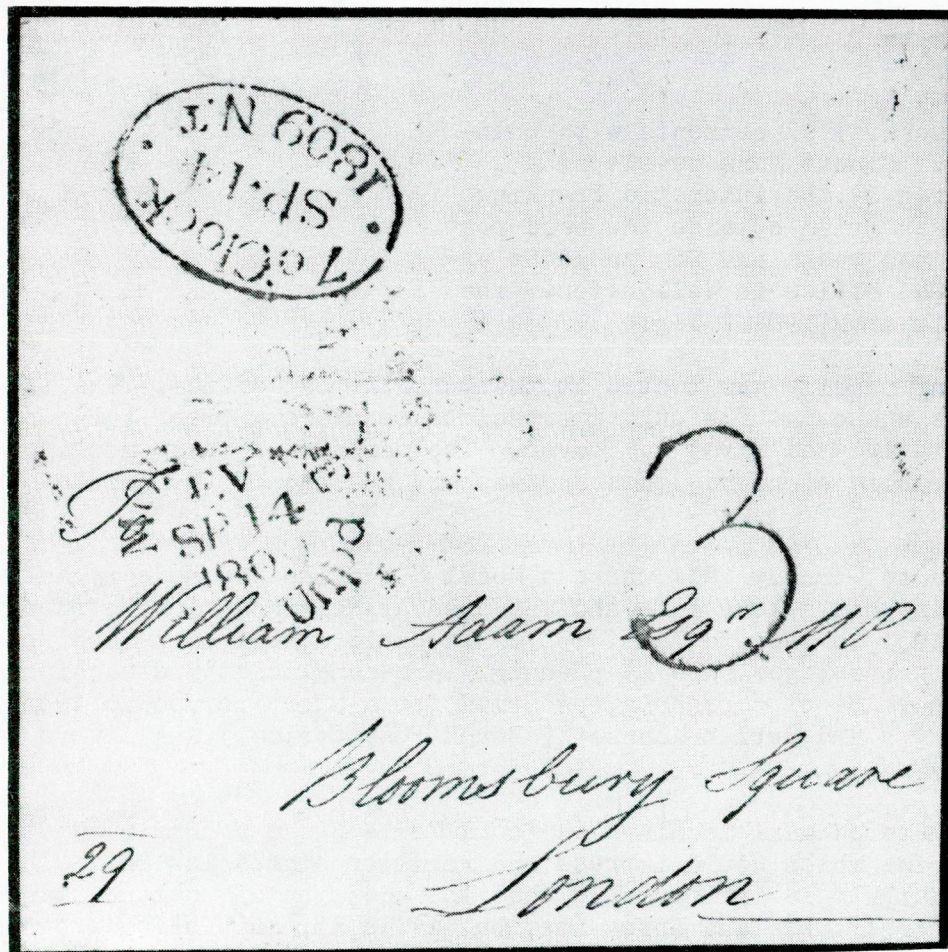 7 o'Clock
SP. 14
1809 N.T
To
SP 14
180
Unpaid
3
William Adam Esqr. MP.
Bloomsbury Square
29
London